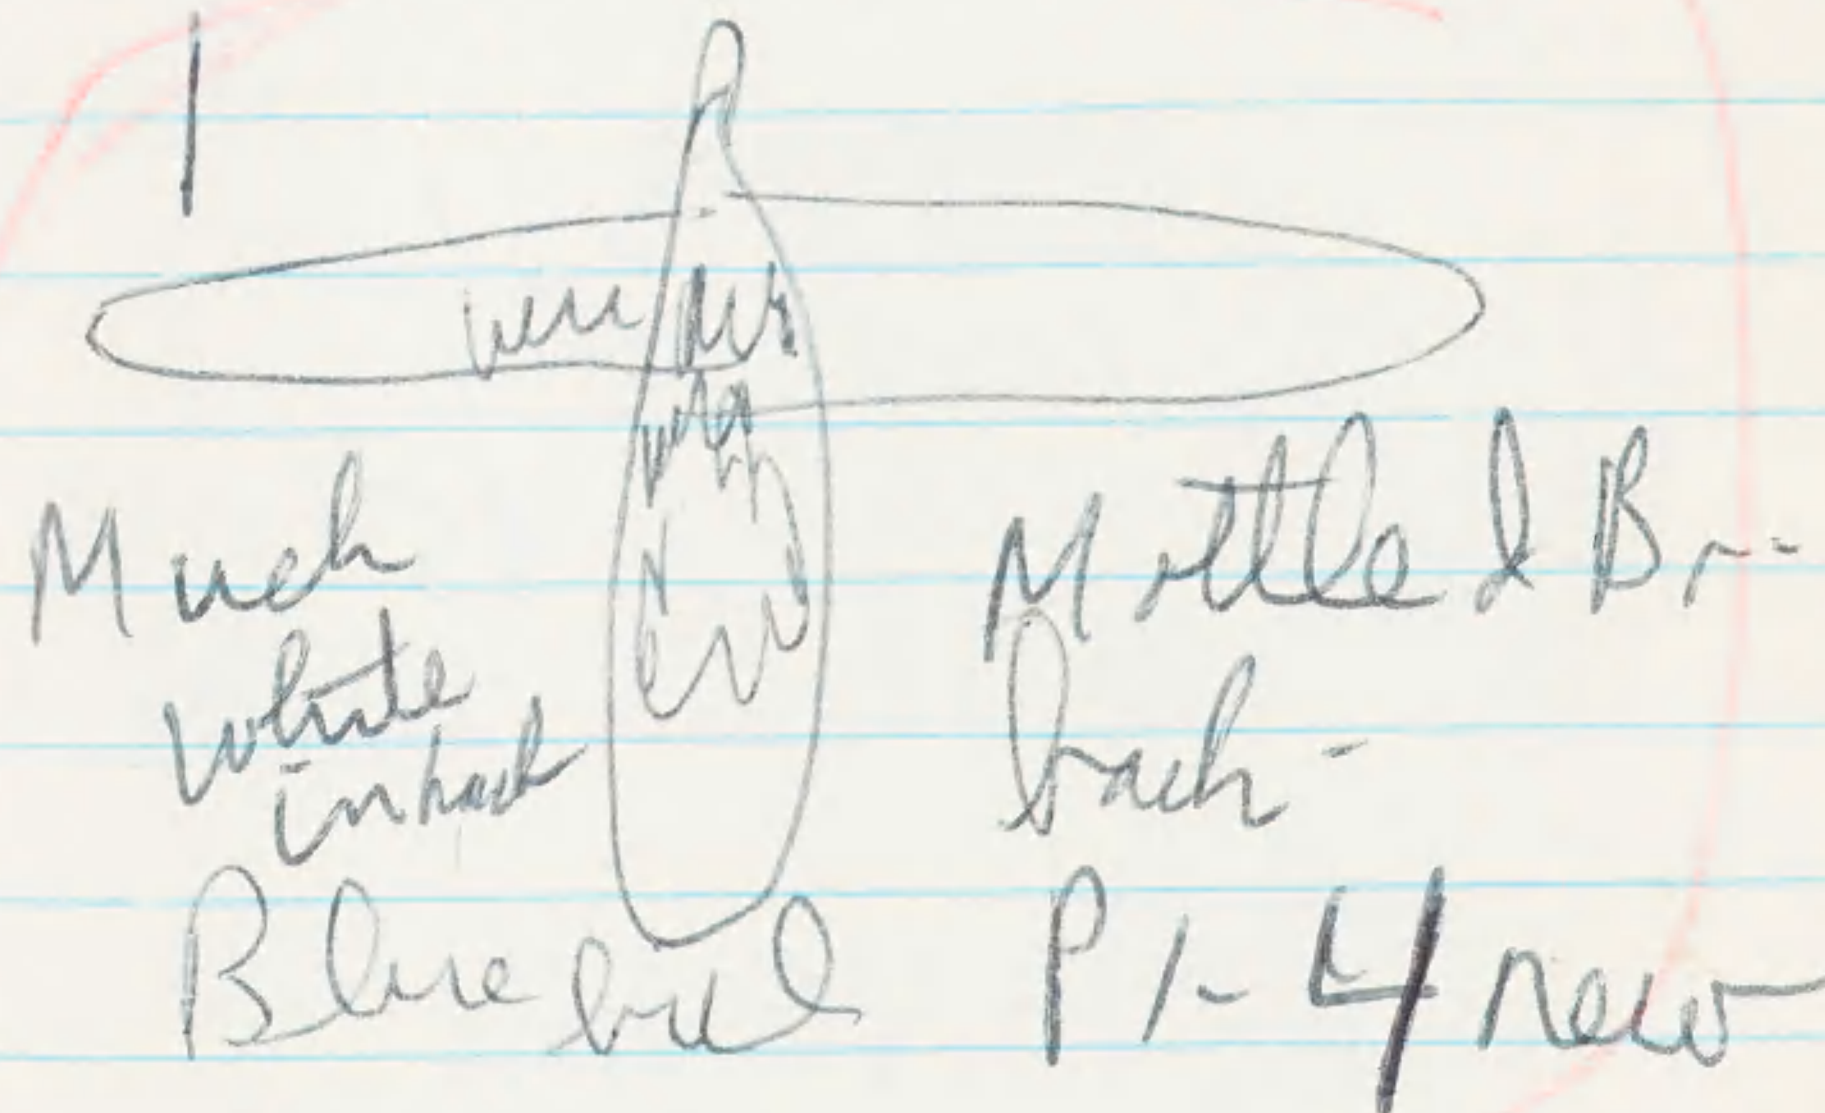 1
Much
white
in back
Blue bill
Mottled Br--
back -
P 1-4 new-